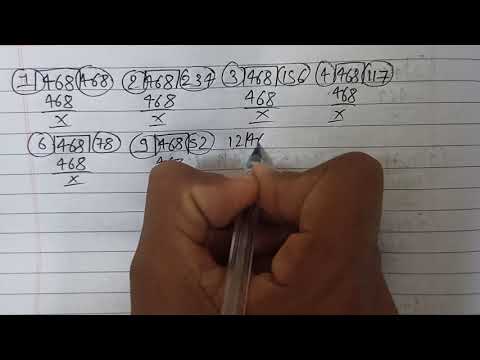 1 468 468 2 468 234 3 468 156 4 468 117
468 468 468 468
x x x x
6 468 78 9 468 52 12 46
468 468
x